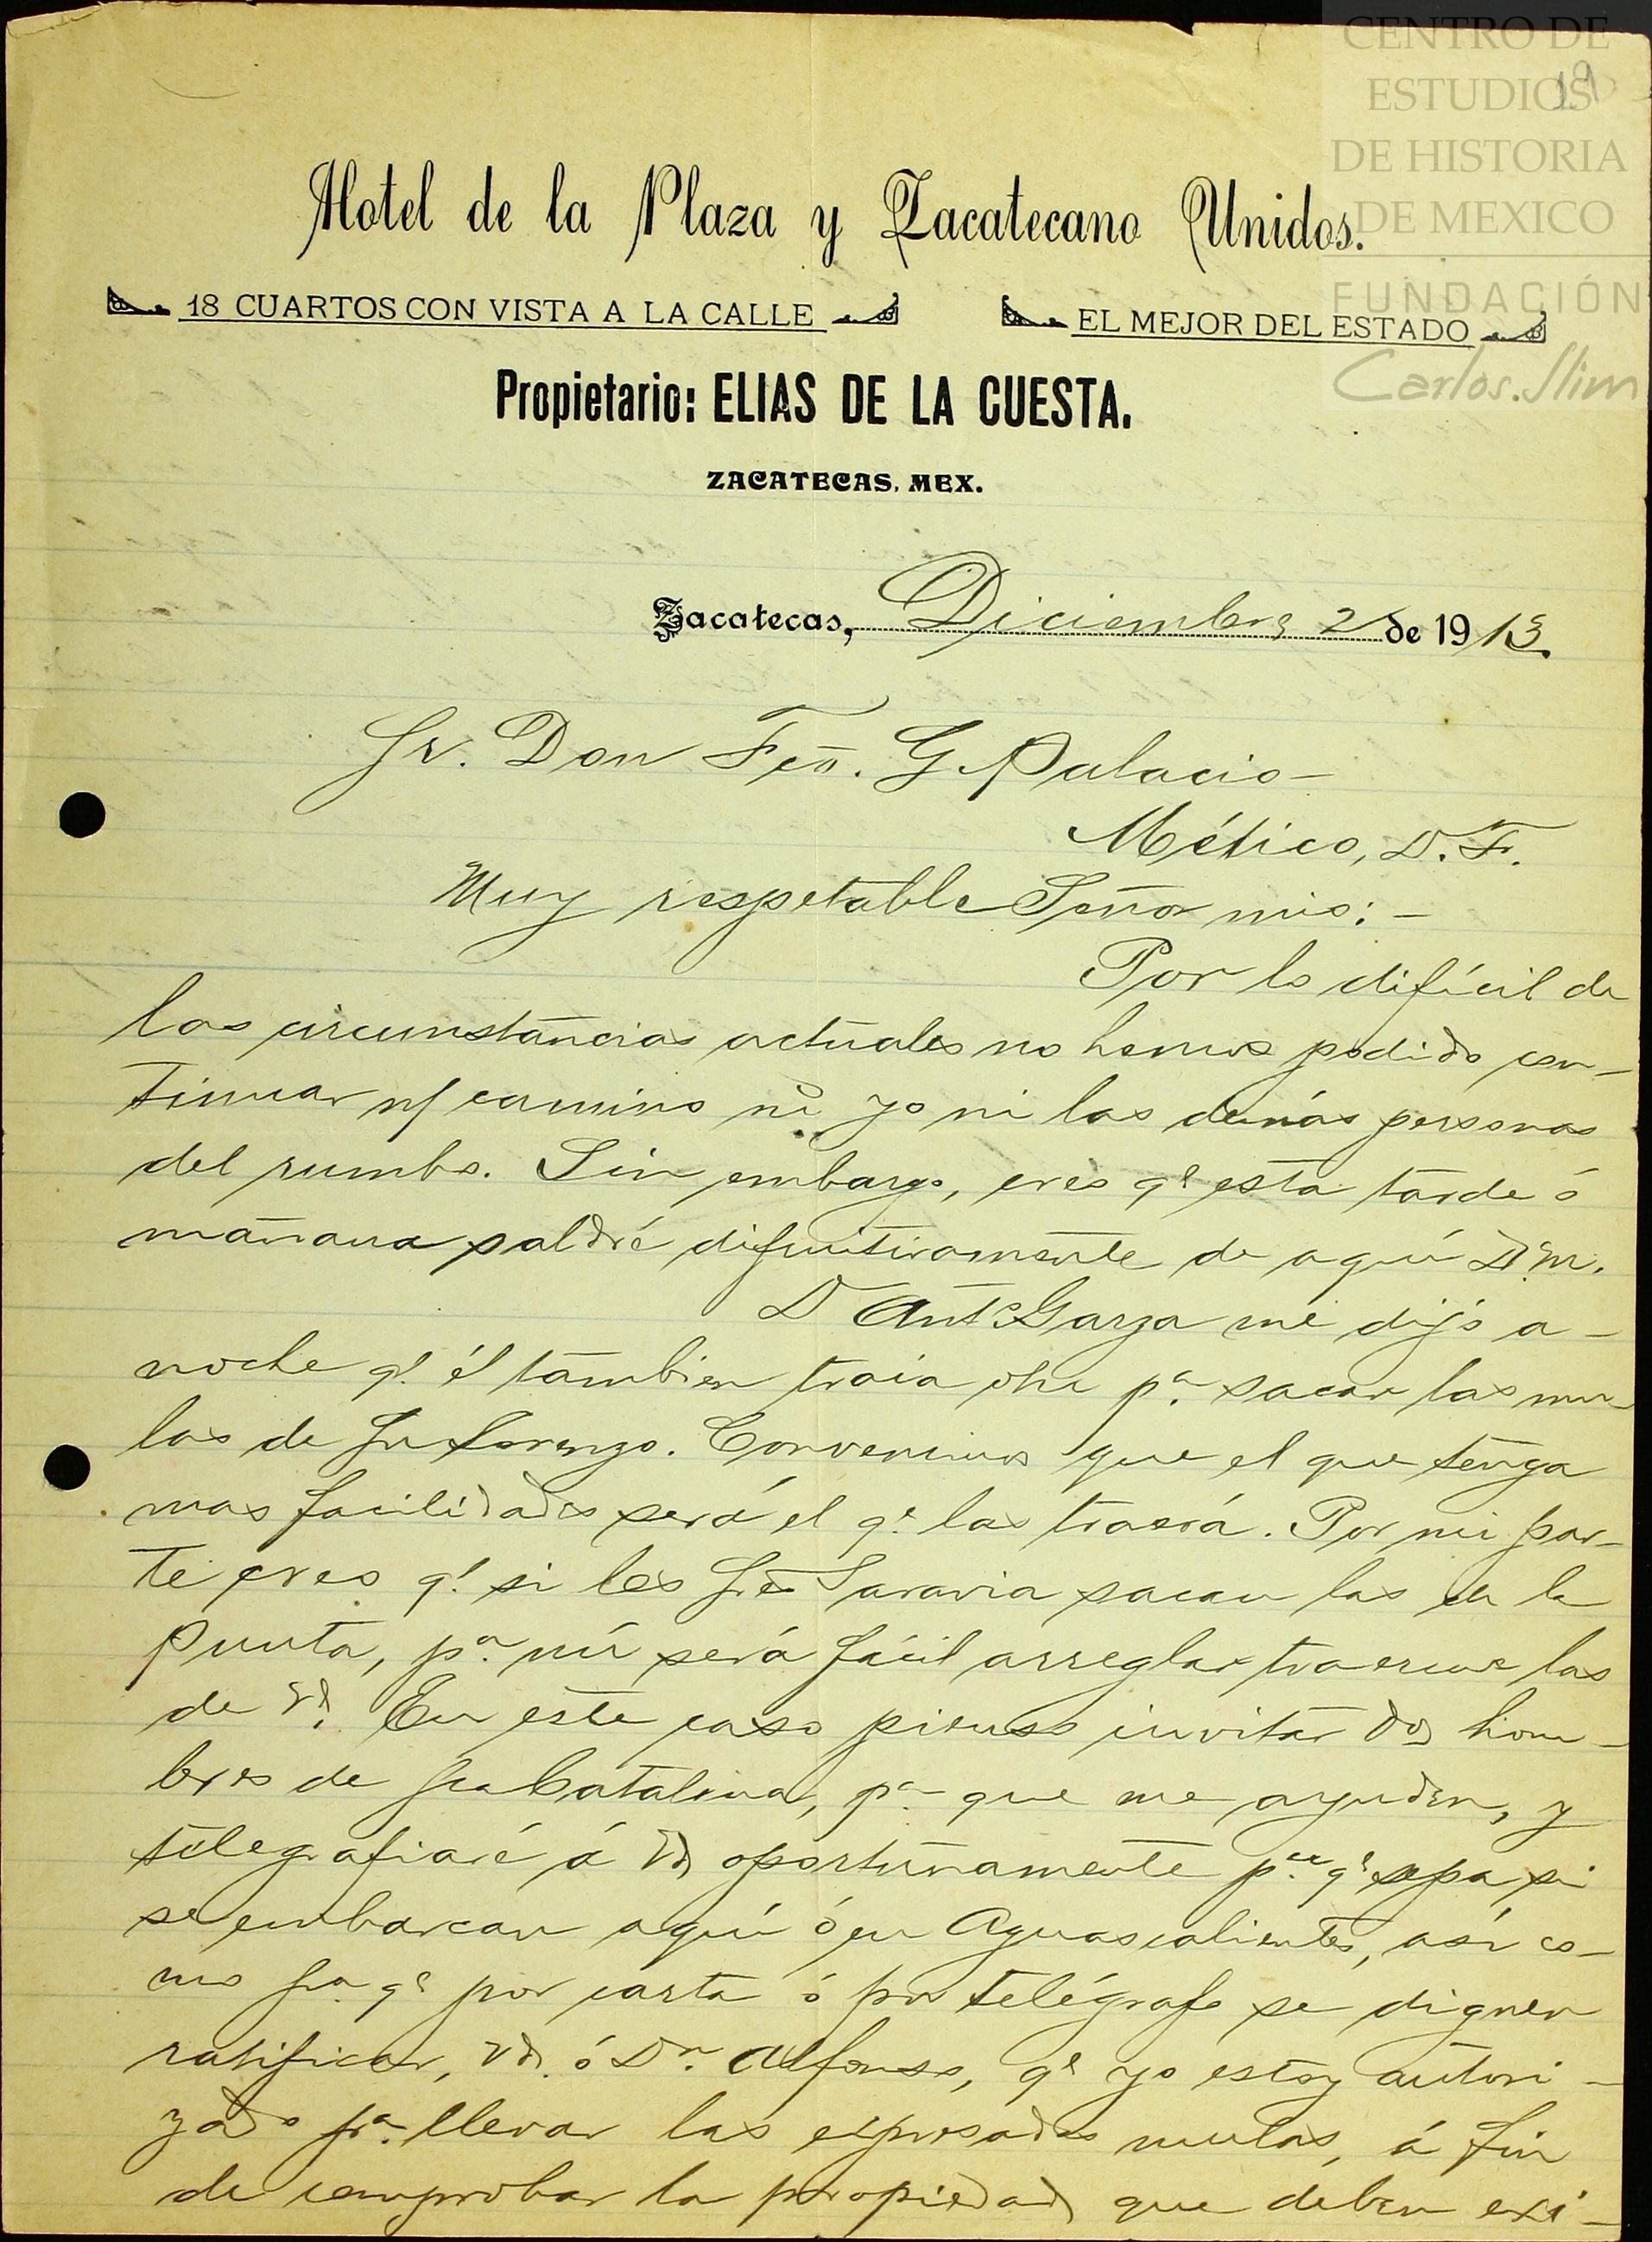 CENTRO DE
ESTUDIOS
19
DE HISTORIA
DE MEXICO
FUNDACIÓN
Carlos Slim
Hotel de la Plaza y Zacatecano Unidos.
18 CUARTOS CON VISTA A LA CALLE EL MEJOR DEL ESTADO
Propietario: ELIAS DE LA CUESTA.
ZACATECAS, MEX.
Zacatecas, Diciembre 2 de 1913.
Sr. Don Fco. G. Palacio-
México, D. F.
Muy respetable Señor mio: -
Por lo difícil de
las circunstancias actuales no hemos podido con-
tinuar n/ camino ni yo ni las demás personas
del rumbo. Sin embargo, creo qe esta tarde ó
mañana saldré difinitivamente de aquí D. m.
D Anto Garza me dijo a-
noche qe él tambien traia pa. sacar las mu-
las de Sn Lorenzo. Convenimos que el que tenga
mas facilidades será el qe las traerá. Por mi par-
te creo qe si los Sres Saravia sacan las de la
Punta, pa. mí será fácil arreglar traerme las
de Vd. En este caso pienso invitar dos hom-
bres de Sta Catalina, pa que me ayuden, y
telegrafiaré á Vd oportunamente pa. qe sepa si
se embarcan aquí ó en Aguascalientes, así co-
mo pa. qe por carta ó por telégrafo se dignen
ratificar, Vd. ó Dn. Alfonso, qe yo estoy autori-
zado pa. llevar las expresadas mulas, á fin
de comprobar la propiedad que deben exi-